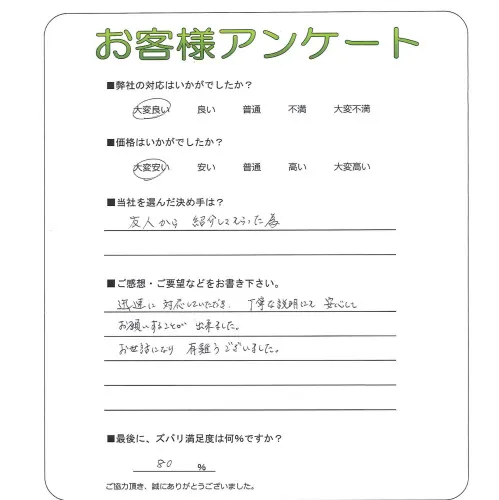 お客様アンケート
■弊社の対応はいかがでしたか？
大変良い 良い 普通 不満 大変不満
■価格はいかがでしたか？
大変安い 安い 普通 高い 大変高い
■当社を選んだ決め手は？
友人から 紹介してもらった為
■ご感想・ご要望などをお書き下さい。
迅速に 対応していただき、丁寧な説明にて 安心して
お願いすることが 出来ました。
お世話になり 有難うございました。
■最後に、ズバリ満足度は何％ですか？
80 ％
ご協力頂き、誠にありがとうございました。